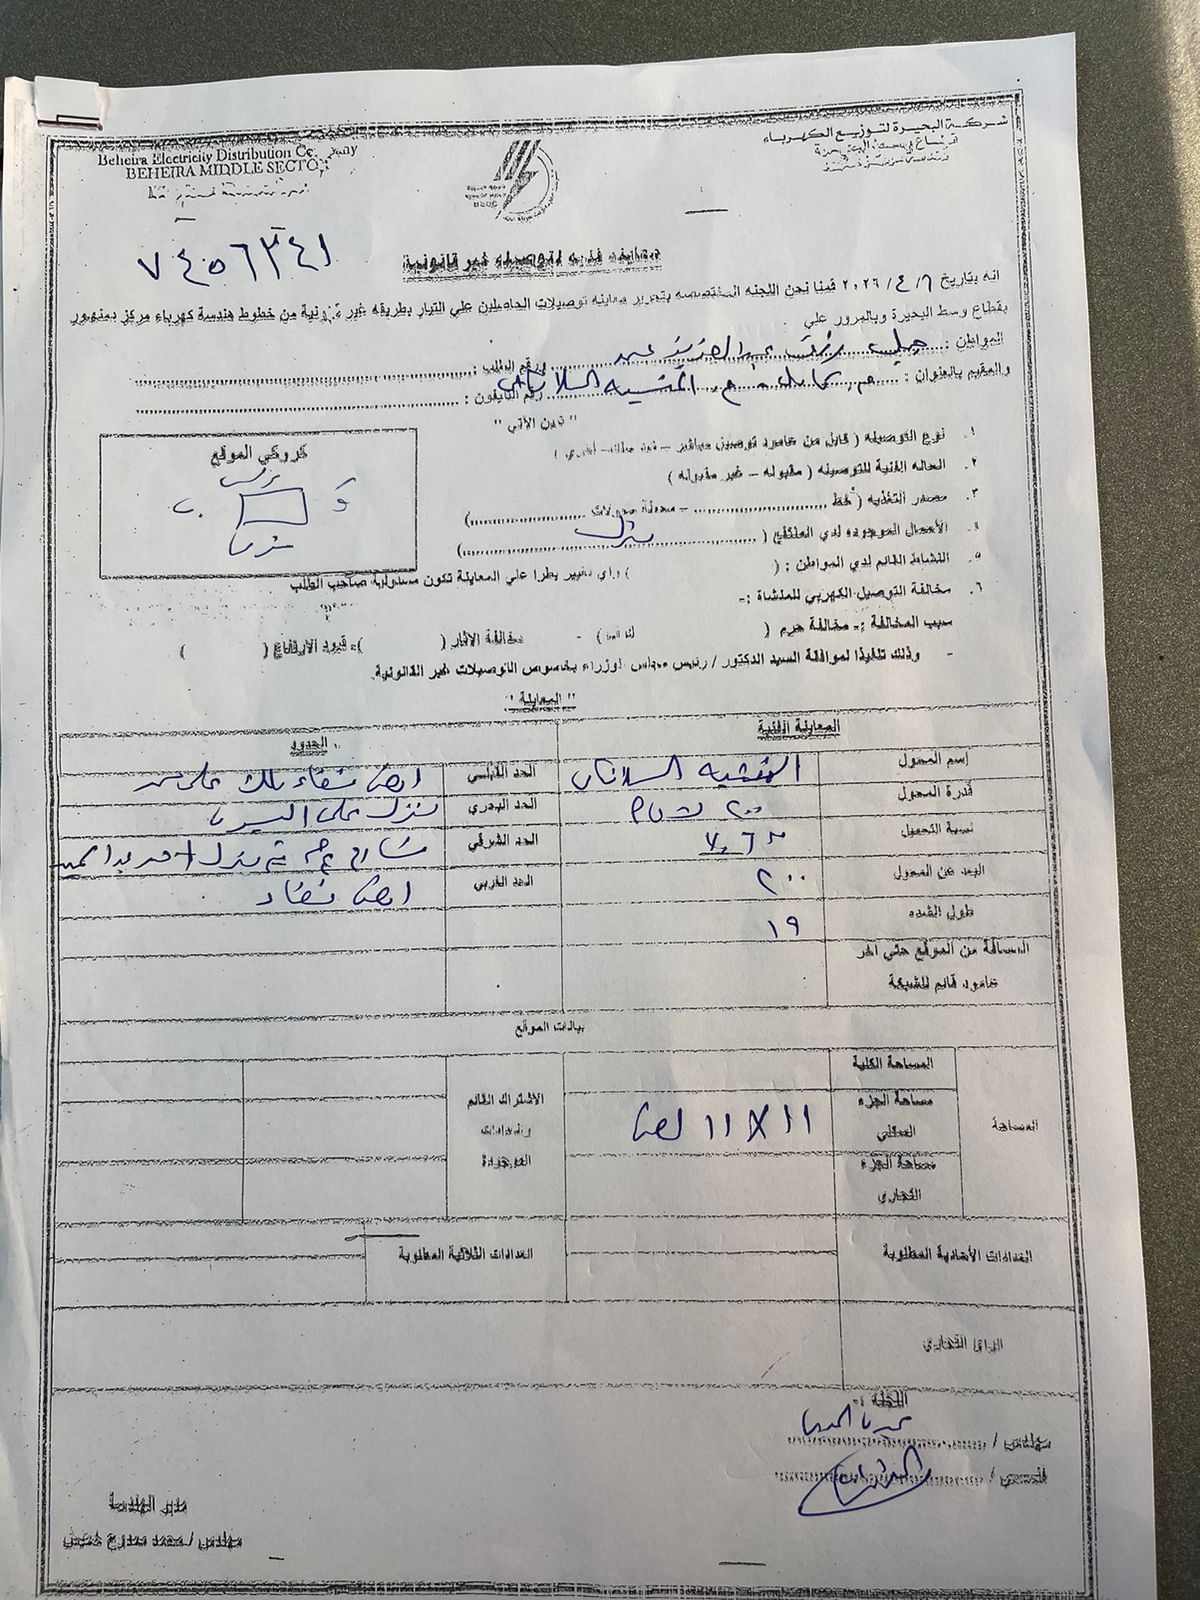 شركة البحيرة لتوزيع الكهرباء
Beheira Electricity Distribution Company
BEHEIRA MIDDLE SECTOR
٧٤٥٦٣٤١
معاينة فنية لتوصيله غير قانونية
انه بتاريخ ٦ / ٤ / ٢٠٢٦ قمنا نحن اللجنه المختصه بتحرير معاينه توصيلات الحاصلين علي التيار بطريقه غير قانونية من خطوط هندسة كهرباء مركز دمنهور
بقطاع وسط البحيرة وبالمرور علي :
المواطن : عبد العزيز رقم الطلب :
والمقيم بالعنوان : المنشيه رقم التليفون :
" تبين الآتي "
كروكي الموقع
١. نوع التوصيله (
٢. الحاله الفنية للتوصيله ( مقبوله – غير مقبوله )
٣. مصدر التغذيه ( خط – محطة محولات )
٤. الأحمال الموجوده لدي المنتفع ( منزل )
٥. النشاط القائم لدي المواطن : ( ) واي تغيير يطرا علي المعاينة تكون مسئولية صاحب الطلب
٦. مخالفة التوصيل الكهربي للمنشاة :-
سبب المخالفة :- مخالفة حرم ( ) - مخالفة الاثار ( ) - قيود الارتفاع ( )
- وذلك تنفيذا لموافقة السيد الدكتور / رئيس مجلس الوزراء بخصوص التوصيلات غير القانونية.
" المعاينة "
المعاينة الفنية
الحدود
إسم المحول المنشيه
الحد القبلي ارض فضاء ملك
قدرة المحول ٢٠٠
الحد البحري منزل على
نسبة التحميل
الحد الشرقي شارع ٣م ثم منزل
البعد عن المحول ٢٠٠
الحد الغربي ارض فضاء
طول الشده ١٩
المسافة من الموقع حتي اخر
عامود قائم للشبكة
بيانات الموقع
المساحة
المساحة الكلية
مساحة الجزء
السكني
١١ X ١١
مساحة الجزء
التجاري
الاشتراك القائم
والعدادات
الموجودة
العدادات الأحادية المطلوبة
العدادات الثلاثية المطلوبة
الرأي التجاري
اللجنة :-
مهندس /
مدير الهندسة
مهندس / محمد ممدوح